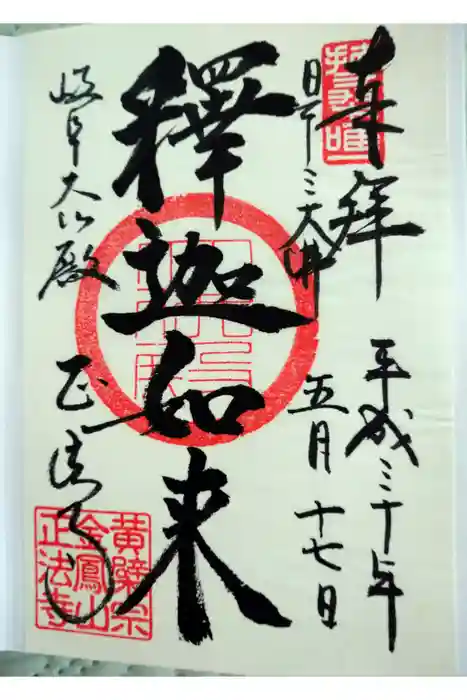 奉拝
平成三十年
日下三大佛
五月十七日
釋迦如来
岐阜大仏殿
正法寺
黄檗宗
金鳳山
正法寺